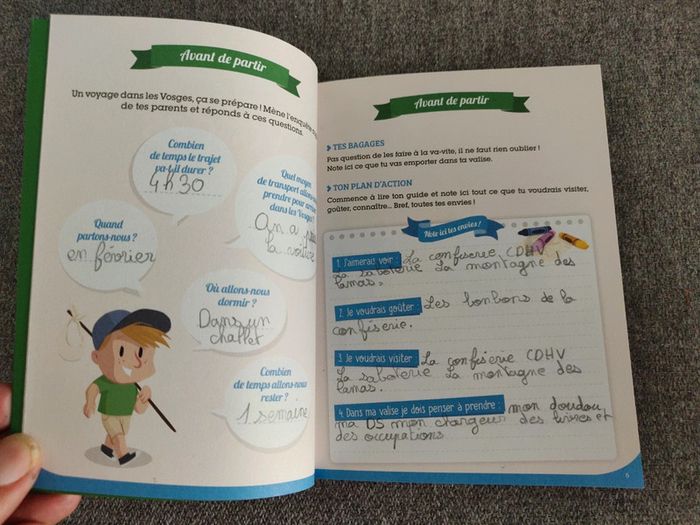 Avant de partir
Un voyage dans les Vosges, ça se prépare ! Mène l'enquête
de tes parents et réponds à ces questions.
Combien
de temps le trajet
va-t-il durer ?
4h30
Quel moyen
de transport allons-
prendre pour
dans les Vosges ?
On a
la voiture
Quand
partons-nous ?
en février
Où allons-nous
dormir ?
Dans un
challet
Combien
de temps allons-nous
rester ?
1 semaine
Avant de partir
TES BAGAGES
Pas question de les faire à la va-vite, il ne faut rien oublier !
Note ici ce que tu vas emporter dans ta valise.
TON PLAN D'ACTION
Commence à lire ton guide et note ici tout ce que tu voudrais visiter,
goûter, connaître... Bref, toutes tes envies !
Note ici tes envies !
1. J'aimerais voir : La confiserie CDHV
La saboterie La montagne des
lamas.
2. Je voudrais goûter : Les bonbons de la
confiserie.
3. Je voudrais visiter La confiserie CDHV
La saboterie La montagne des
lamas.
4. Dans ma valise je dois penser à prendre : mon doudou
ma DS mon chargeur des livres et
des occupations